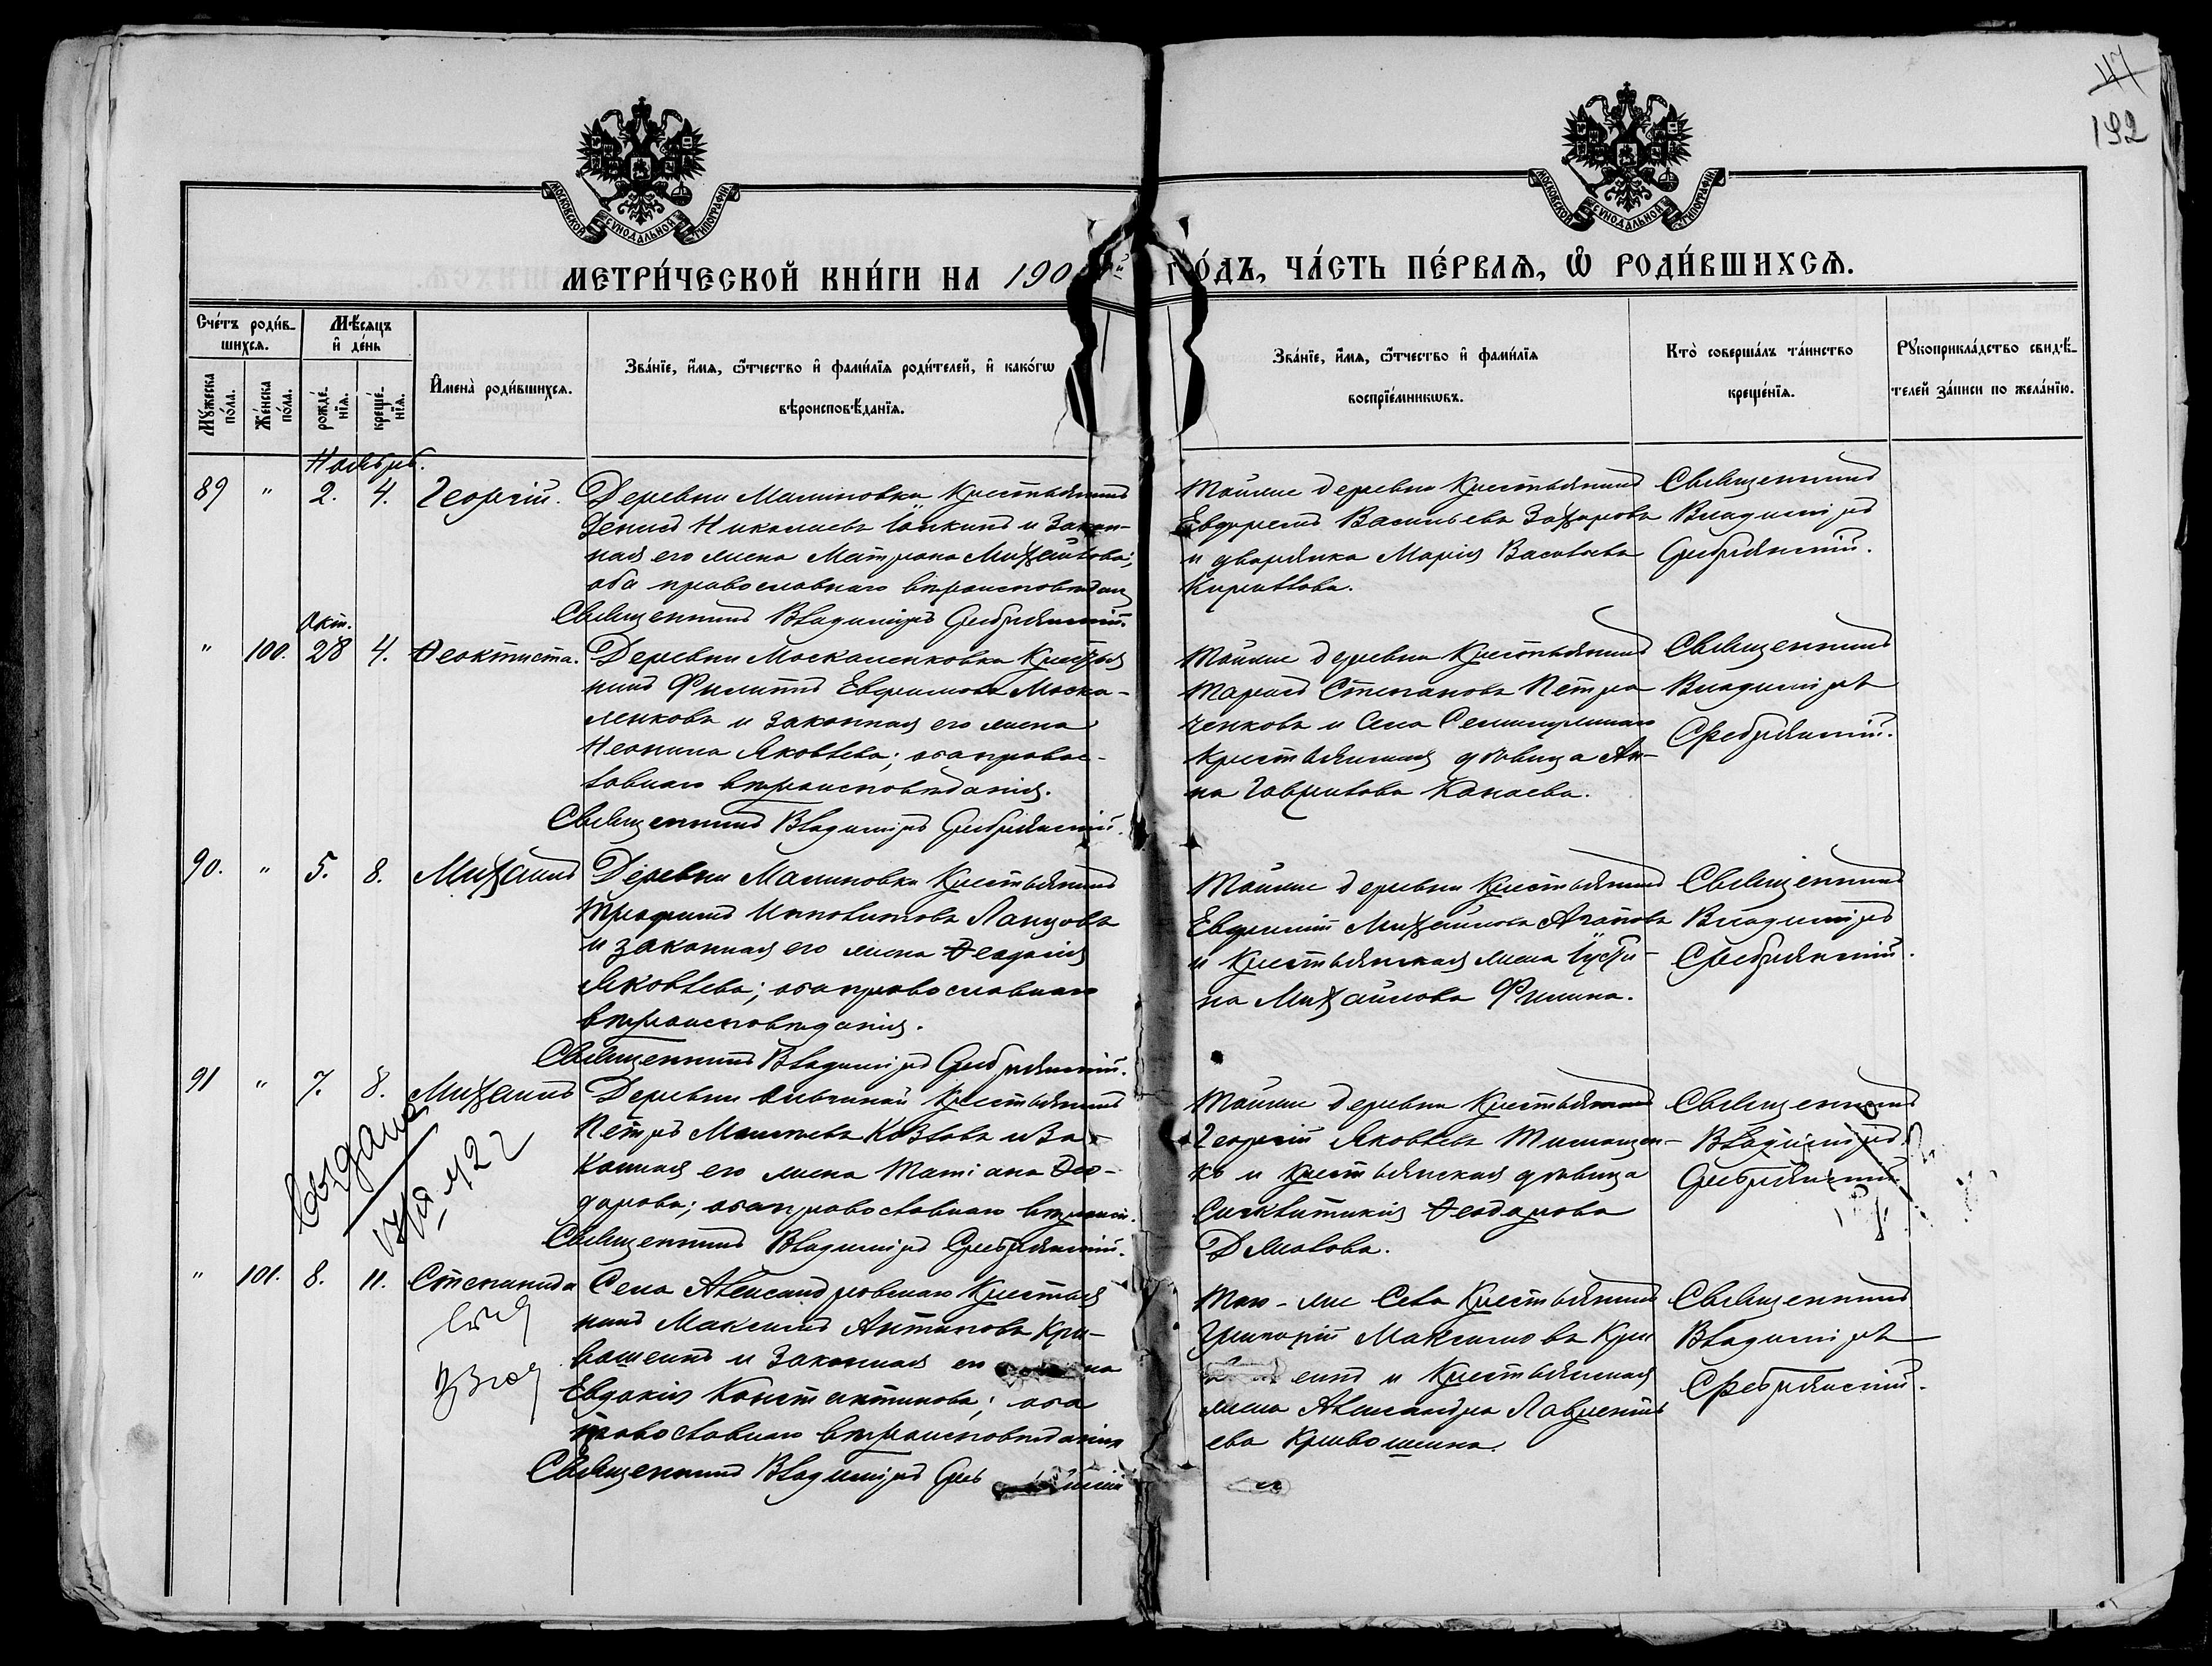 47
192
МОСКОВСКОЙ СѴНОДАЛЬНОЙ ТИПОГРАФІИ
МОСКОВСКОЙ СѴНОДАЛЬНОЙ ТИПОГРАФІИ
МЕТРИ́ЧЕСКОЙ КНИ́ГИ НА 190 ГО́ДЪ, ЧА́СТЬ ПЕ́РВАѦ, Ѽ РОДИ́ВШИХСѦ.
Сче́тъ роди́в-
шихсѧ.
Мꙋ́жеска по́ла.
Же́нска по́ла.
Мѣ́сѧцъ и҆ де́нь
рожде́-нїѧ.
креще́-нїѧ.
И҆мена̀ роди́вшихсѧ.
Зва́нїе, и҆́мѧ, ѻ҆́тчество и҆ фами́лїѧ роди́телей, и҆ како́гѡ
вѣроисповѣ́данїѧ.
Зва́нїе, и҆́мѧ, ѻ҆́тчество и҆ фами́лїѧ
воспрїе́мникѡвъ.
Кто̀ соверша́лъ та́инство
креще́нїѧ.
Рꙋкоприкла́дство свидѣ́-
телей за́писи по жела́нїю.
Ноябрь.
89 " 2. 4. Георгій.
Деревни Малиновки Крестьянинъ
Денисъ Николаевъ и Закон-
ная его жена Матрона Михайлова;
оба православнаго вѣроисповѣдан
Священникъ Владиміръ Сребрянскій.
Той же деревни Крестьянинъ
Евдремъ Васильевъ Захаровъ
и дворянка Марія Васильева
Кирилова.
Священникъ
Владиміръ
Сребрянскій.
Окт.
" 100. 28 4. Ѳеоктиста.
Деревни Москаленковка Крестья
нинъ Филиппъ Евфимовъ Моска-
ленковъ и законная его жена
Неонила Яковлева; оба правос-
лавнаго вѣроисповѣданія.
Священникъ Владиміръ Сребрянскій.
Той же деревни Крестьянинъ
Тарасъ Степановъ Петра
ченковъ и Села
Крестьянская дѣвица Ан-
на Гаврилова Канаева.
Священникъ
Владиміръ
Сребрянскій.
90. " 5. 8. Михаилъ
Деревни Малиновки Крестьянинъ
Трофимъ Ипполитовъ Ланцовъ
и законная его жена Ѳеодосія
Яковлева; оба православнаго
вѣроисповѣданія.
Священникъ Владиміръ Сребрянскій.
Той же деревни Крестьянинъ
Евфимій Михайловъ Агаповъ
и Крестьянская жена Іусти-
на Михайлова Филина.
Священникъ
Владиміръ
Сребрянскій.
91 " 7. 8. Михаилъ
Деревни Крестьянинъ
Петръ Козловъ и За-
конная его жена Татіана Ѳео-
дорова; оба православнаго вѣроисп.
Священникъ Владиміръ Сребрянскій.
Той же деревни Крестьянинъ
Георгій Яковлевъ Тимощен-
ко и Крестьянская дѣвица
Синклитикія Ѳеодорова
Священникъ
Владиміръ
Сребрянскій.
" 101. 8. 11. Степанида
Села Александровскаго Крестья
нинъ Максимъ Антиповъ Кри-
вошеинъ и Законная его на
Евдокія Константинова; оба
православнаго вѣроисповѣданія
Священникъ Владиміръ Среб нскій
Того-же Села Крестьянинъ
Григорій Максимовъ Кри
еинъ и Крестьянская
жена Александра Лаврентъ
ева Кривошеина.
Священникъ
Владиміръ
Сребрянскій.